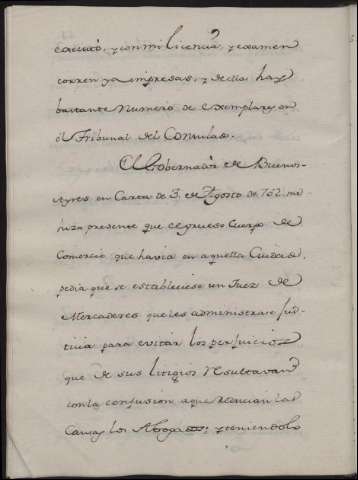 executó, y con mi licencia, y examen
corren ya impresas, y de ella hay
bastante numero de exemplares en
el Tribunal del Consulado.
El Gobernador de Buenos-
Ayres en Carta de 3. de Agosto de 752. me
hizo presente que el grueso Cuerpo de
Comercio que havia en aquella Ciudad,
pedia que se estableciese un Juez de
Mercaderes que les administrase jus-
ticia para evitar los perjuicios
que de sus litigios resultavan
con la confusion a que reducian las
Causas los Abogados; y teniendolo